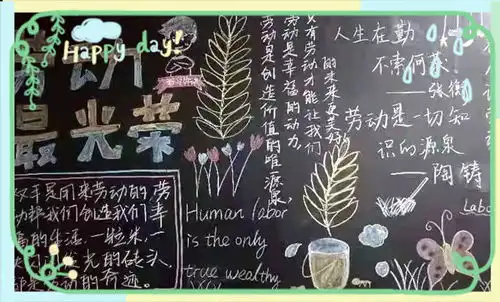 Happy day!
劳动
最光荣
双手是用来劳动的,劳
动帮我们创造我们幸
福的生活,一粒米,一
光的砖头,
劳动的奇迹。
只有劳动才能让我们
的未来更美好
劳动是幸福的动力,
劳动是创造价值的唯一源泉,
Human labor
is the only
true wealthy
人生在勤
不索何获
——张衡
劳动是一切知
识的源泉
——陶铸
Labo